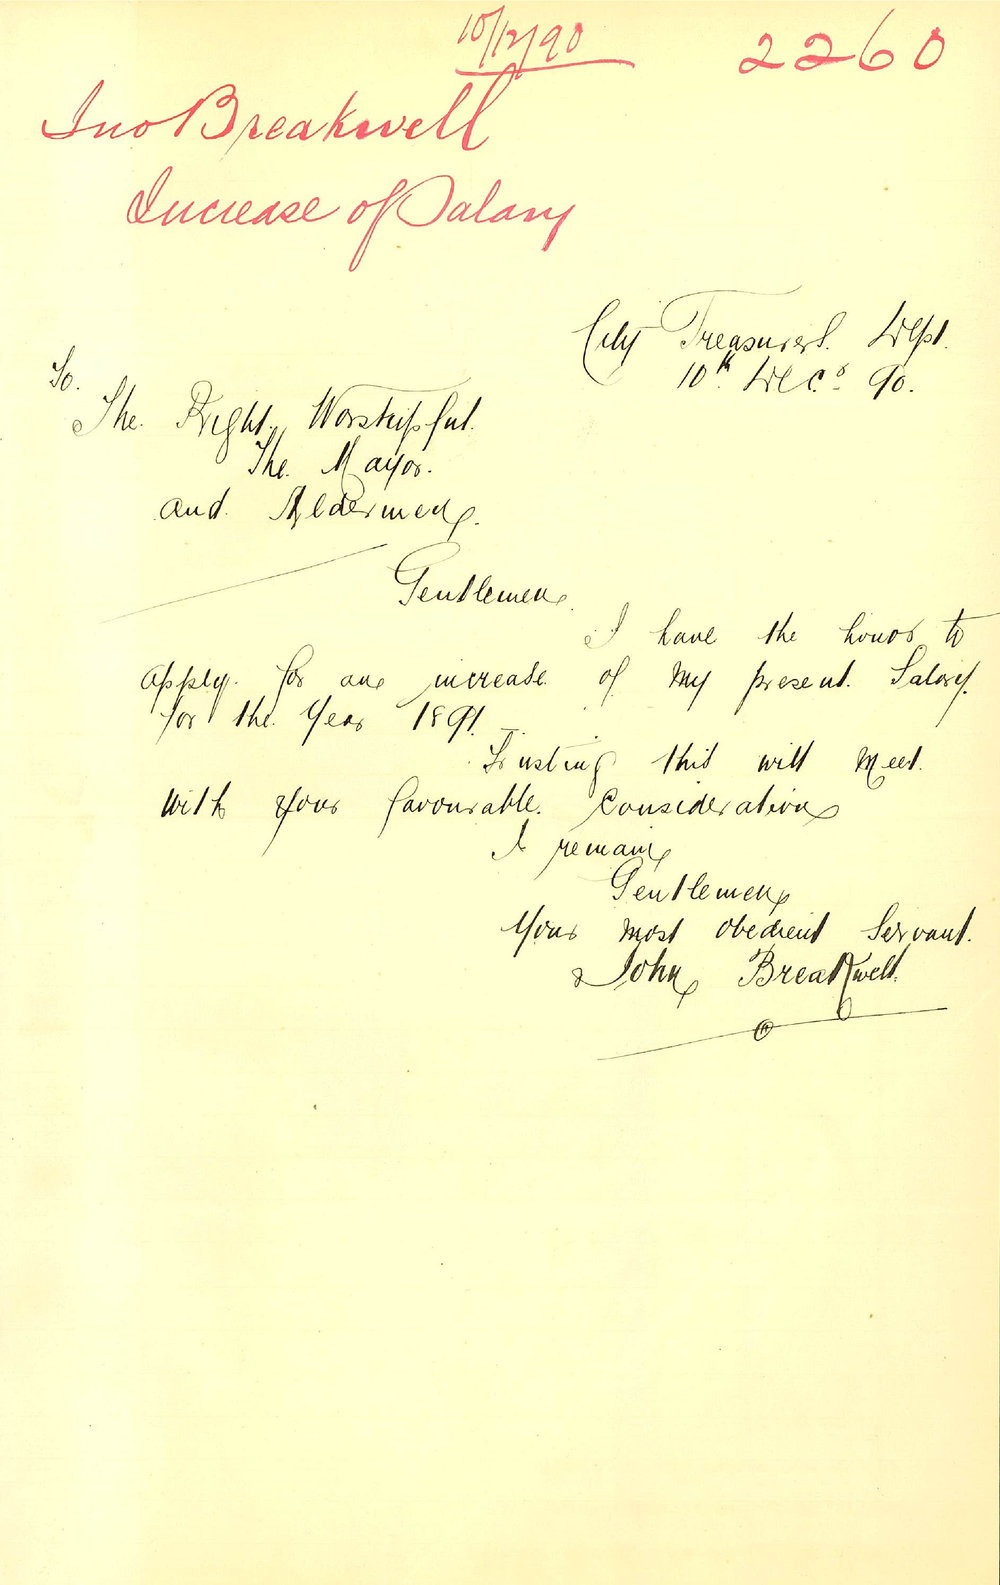 10/12/90
2260
Jno Breakwell
Increase of Salary
City Treasurers. Dept.
10th Dec. 90.
To.
The. Right. Worshipful.
The. Mayor.
and. Aldermen.
Gentlemen.
I have the honor to
apply. for an increase. of my present. Salary.
for the Year 1891.
Trusting this will meet.
with your favourable. Consideration
I remain
Gentlemen
Your most obedient Servant.
John Breakwell.